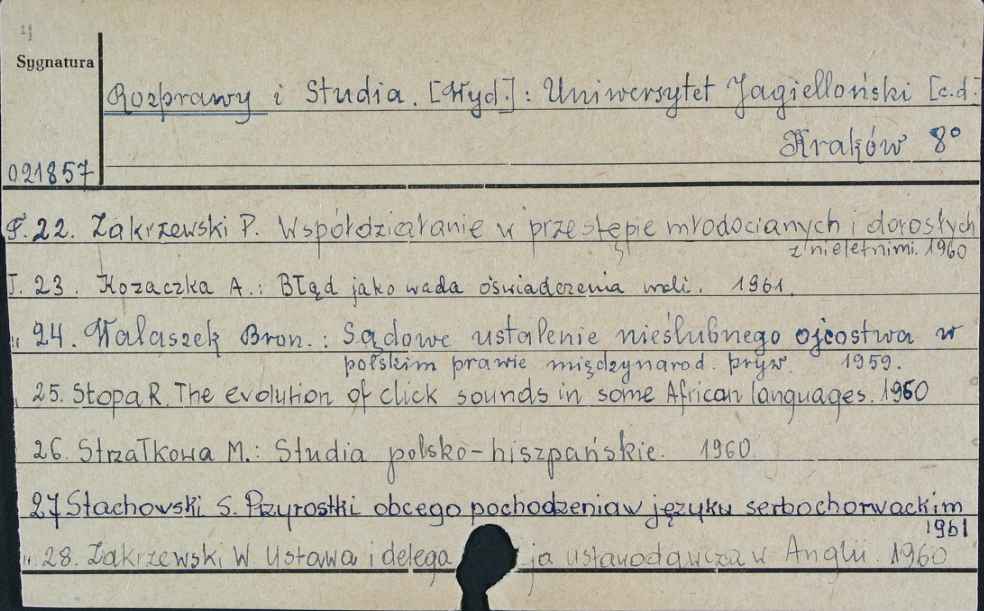 Sygnatura
Rozprawy i Studia. [Wyd.]: Uniwersytet Jagielloński [c.d.]
Kraków 8°
021857
T. 22. Zakrzewski P. Współdziałanie w przestępie młodocianych i dorosłych
z nieletnimi. 1960
T. 23. Kozaczka A.: Błąd jako wada oświadczenia woli. 1961.
" 24. Wałaszek Bron.: Sądowe ustalenie nieślubnego ojcostwa w
polskim prawie międzynarod. pryw. 1959.
25. Stopa R. The evolution of click sounds in some African languages. 1960
26. Strzałkowa M.: Studia polsko-hiszpańskie. 1960
27 Stachowski S. Przyrostki obcego pochodzenia w języku serbochorwackim
1961
" 28. Zakrzewski W Ustawa i delega ja ustawodawcza w Anglii. 1960